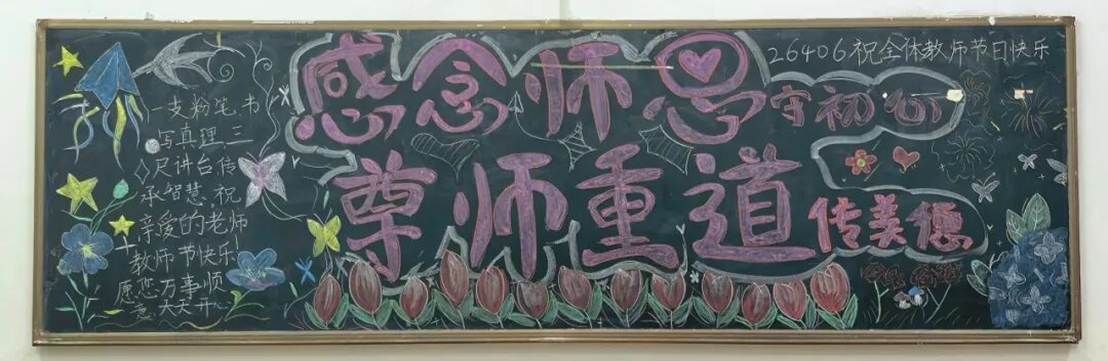 26406祝全体教师节日快乐
感念师恩
守初心
尊师重道
传美德
一支粉笔.书
写真理.三
尺讲台.传
承智慧.祝
亲爱的老师
教师节快乐
愿您万事顺
意天天开心